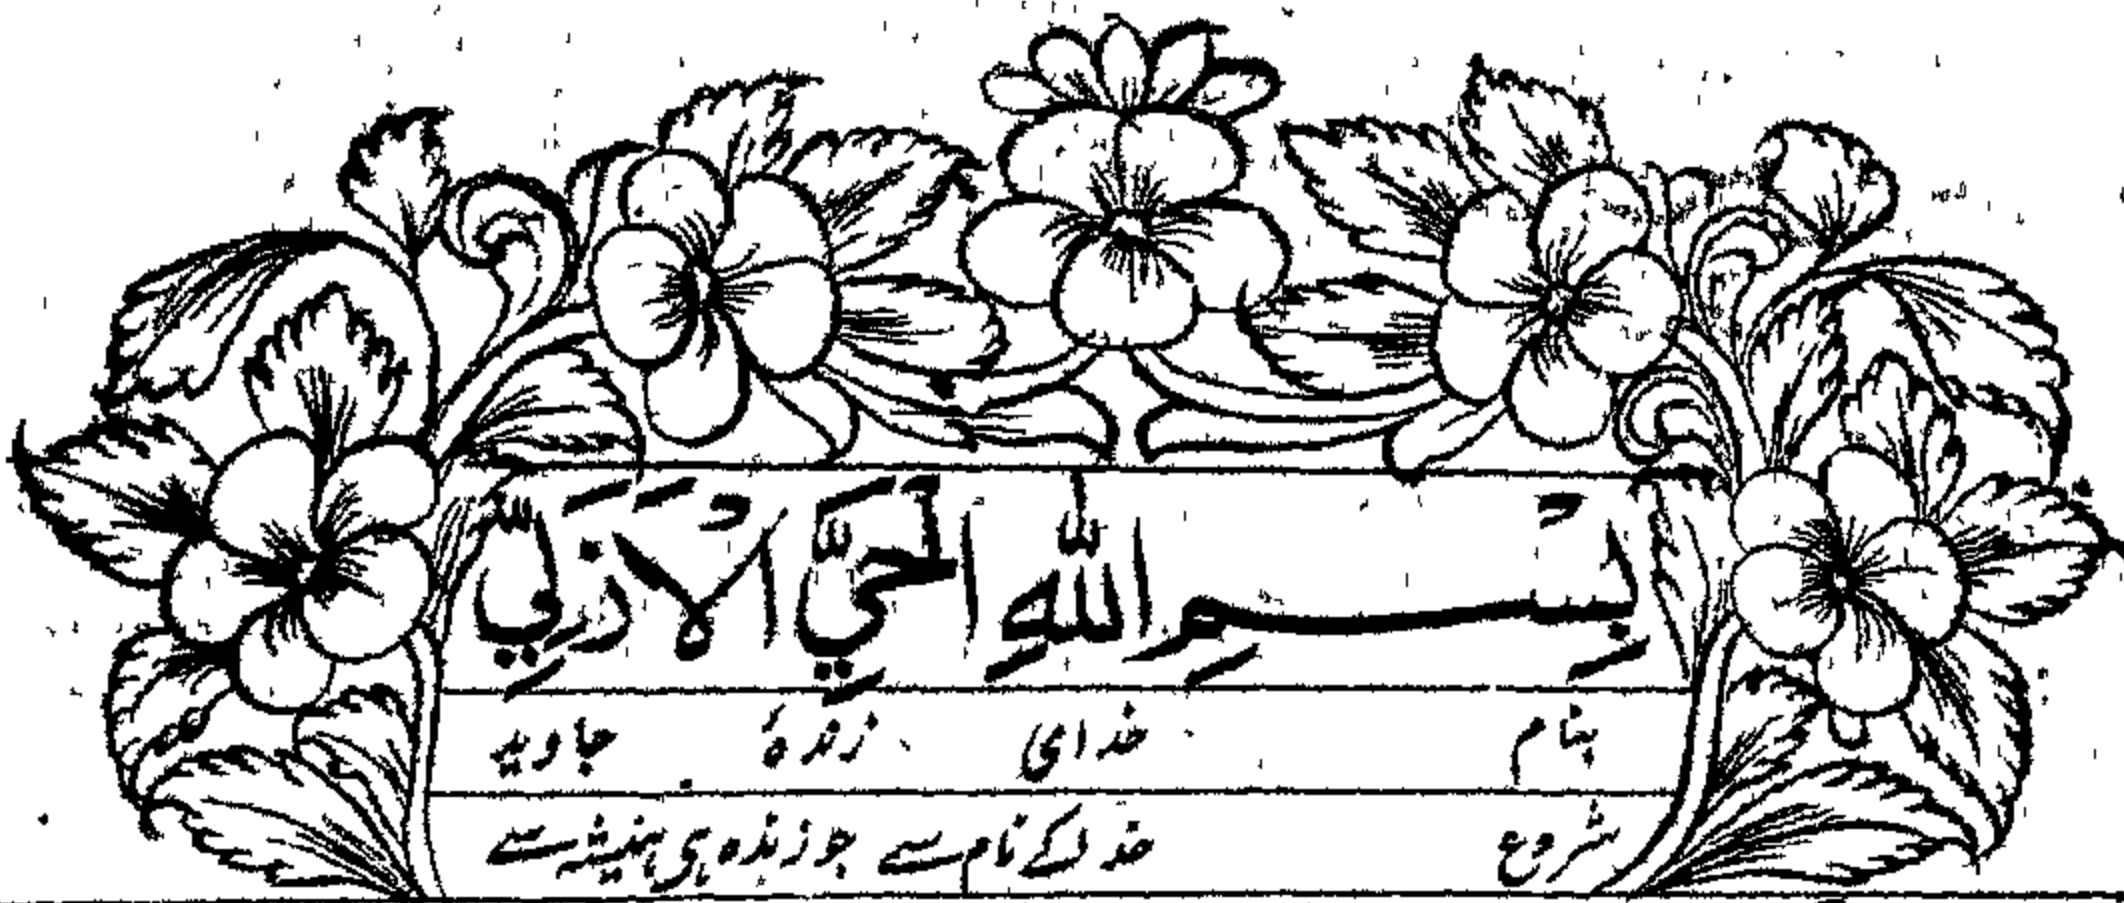 بِسْمِ اللّٰهِ الْحَيِّ الْاَزَلِيِّ
بنام خدای زندهٔ جاوید
شروع خدا کے نام سے جو زندہ ہی ہمیشہ سے